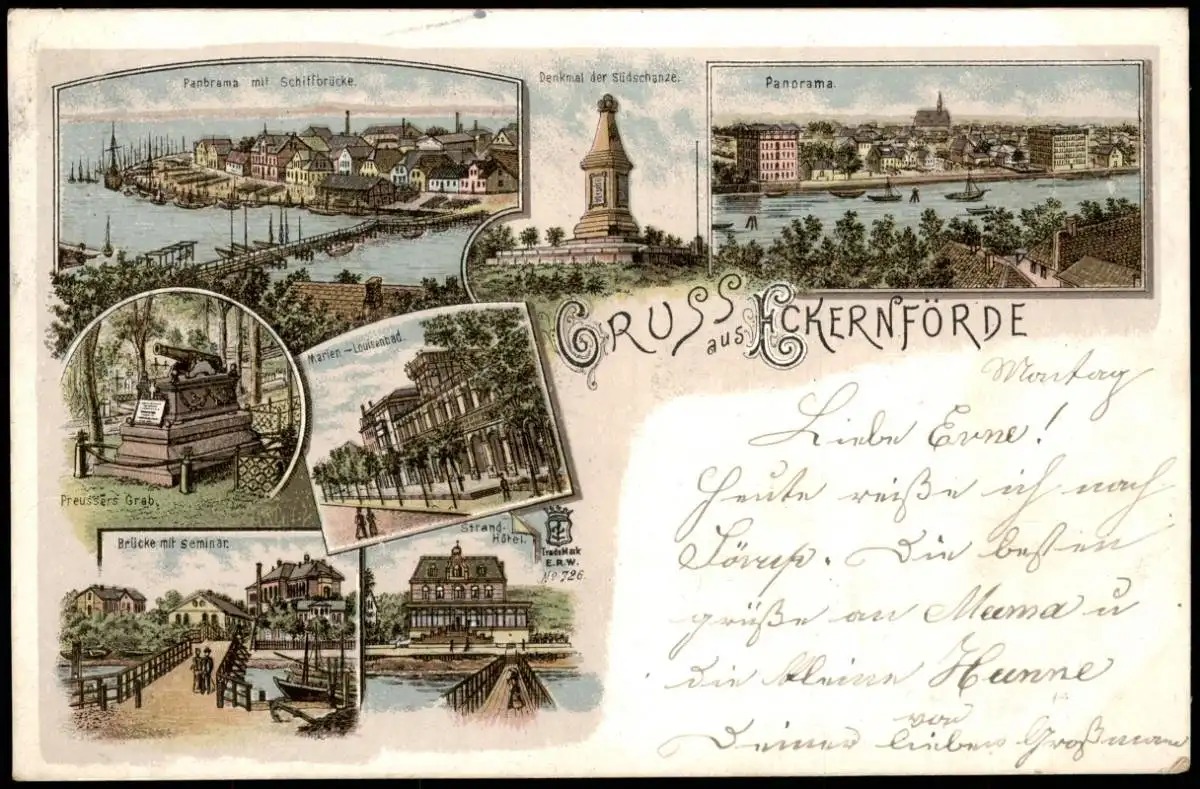 Panorama mit Schiffbrücke.
Denkmal der Südschanze.
Panorama.
GRUSS aus ECKERNFÖRDE
Marien-Louisenbad.
Preussers Grab.
Brücke mit Seminar.
Strand-
Hôtel.
Trade Mark
E.R.W.
No 726.
Montag
Liebe Erne!
Heute reiße ich nach
Die besten
grüße an Mama u
die kleine Hanne
von
Deiner lieben Großmama